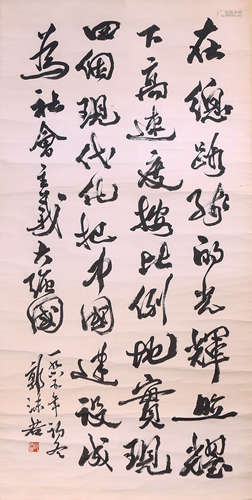 在總路線的光輝照耀
下高速度按比例地實現
四個現代化把中國建設成
為社會主義大強國
年初冬
郭沫若